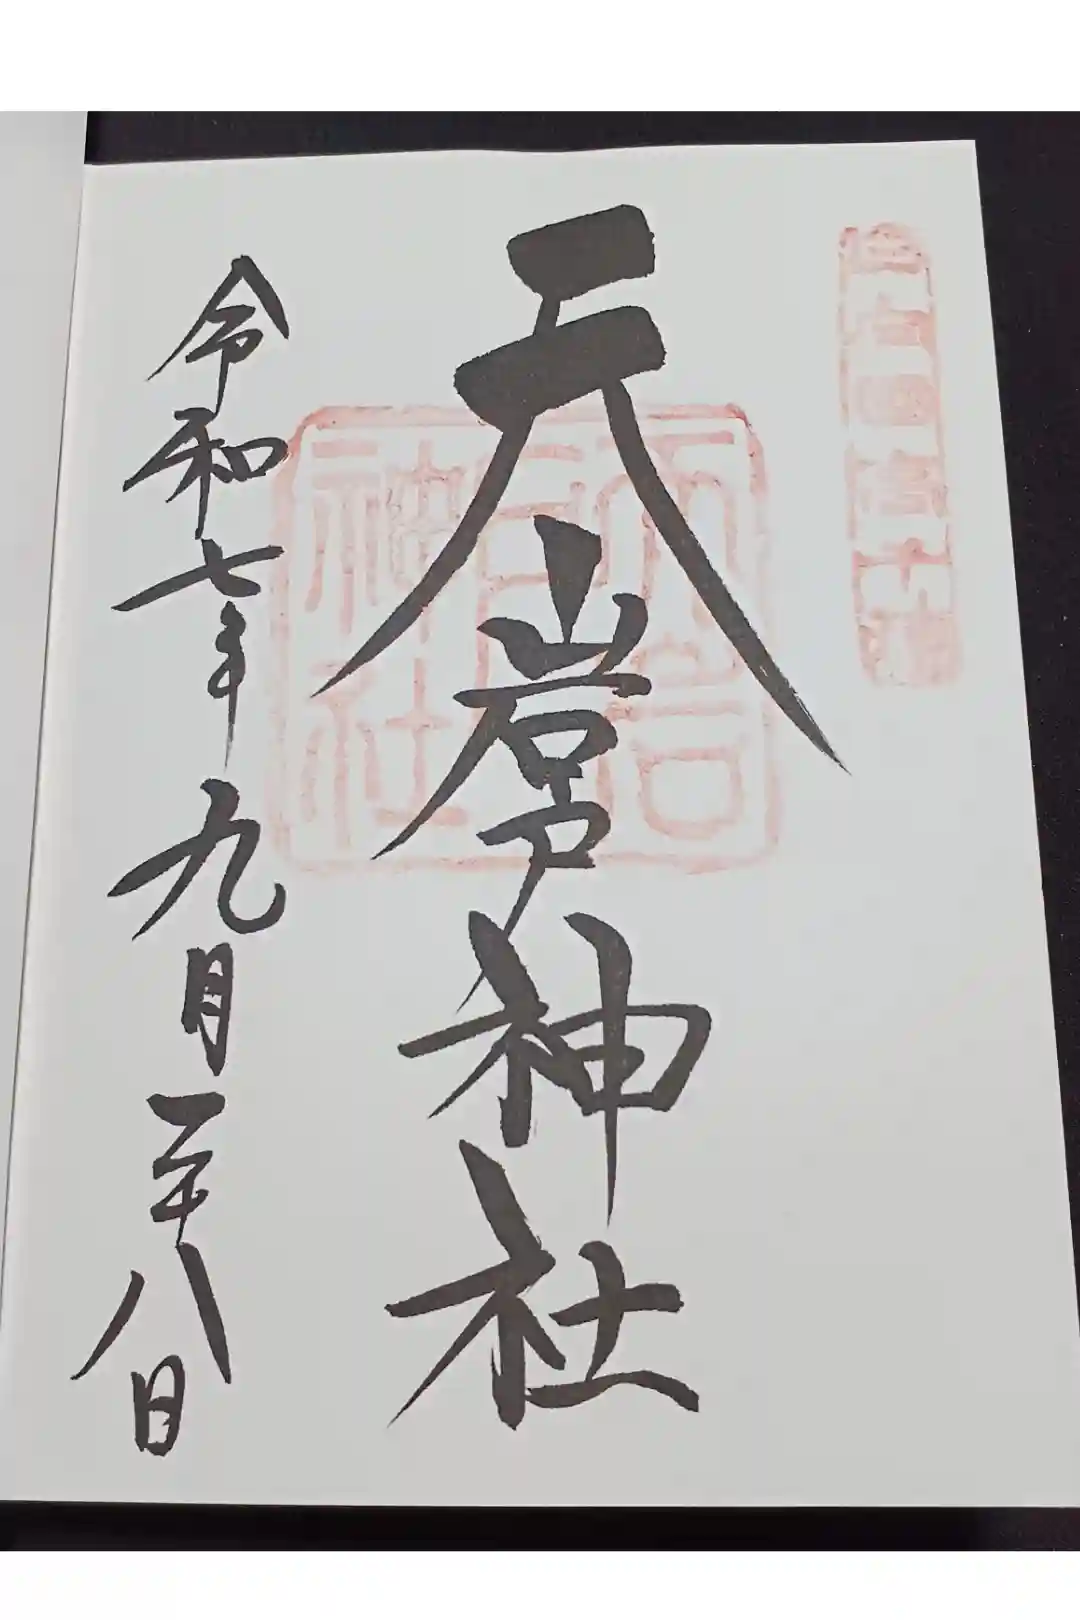 國高千穂
天岩戸神社
天岩
戸
神社
令和七年九月二十八日